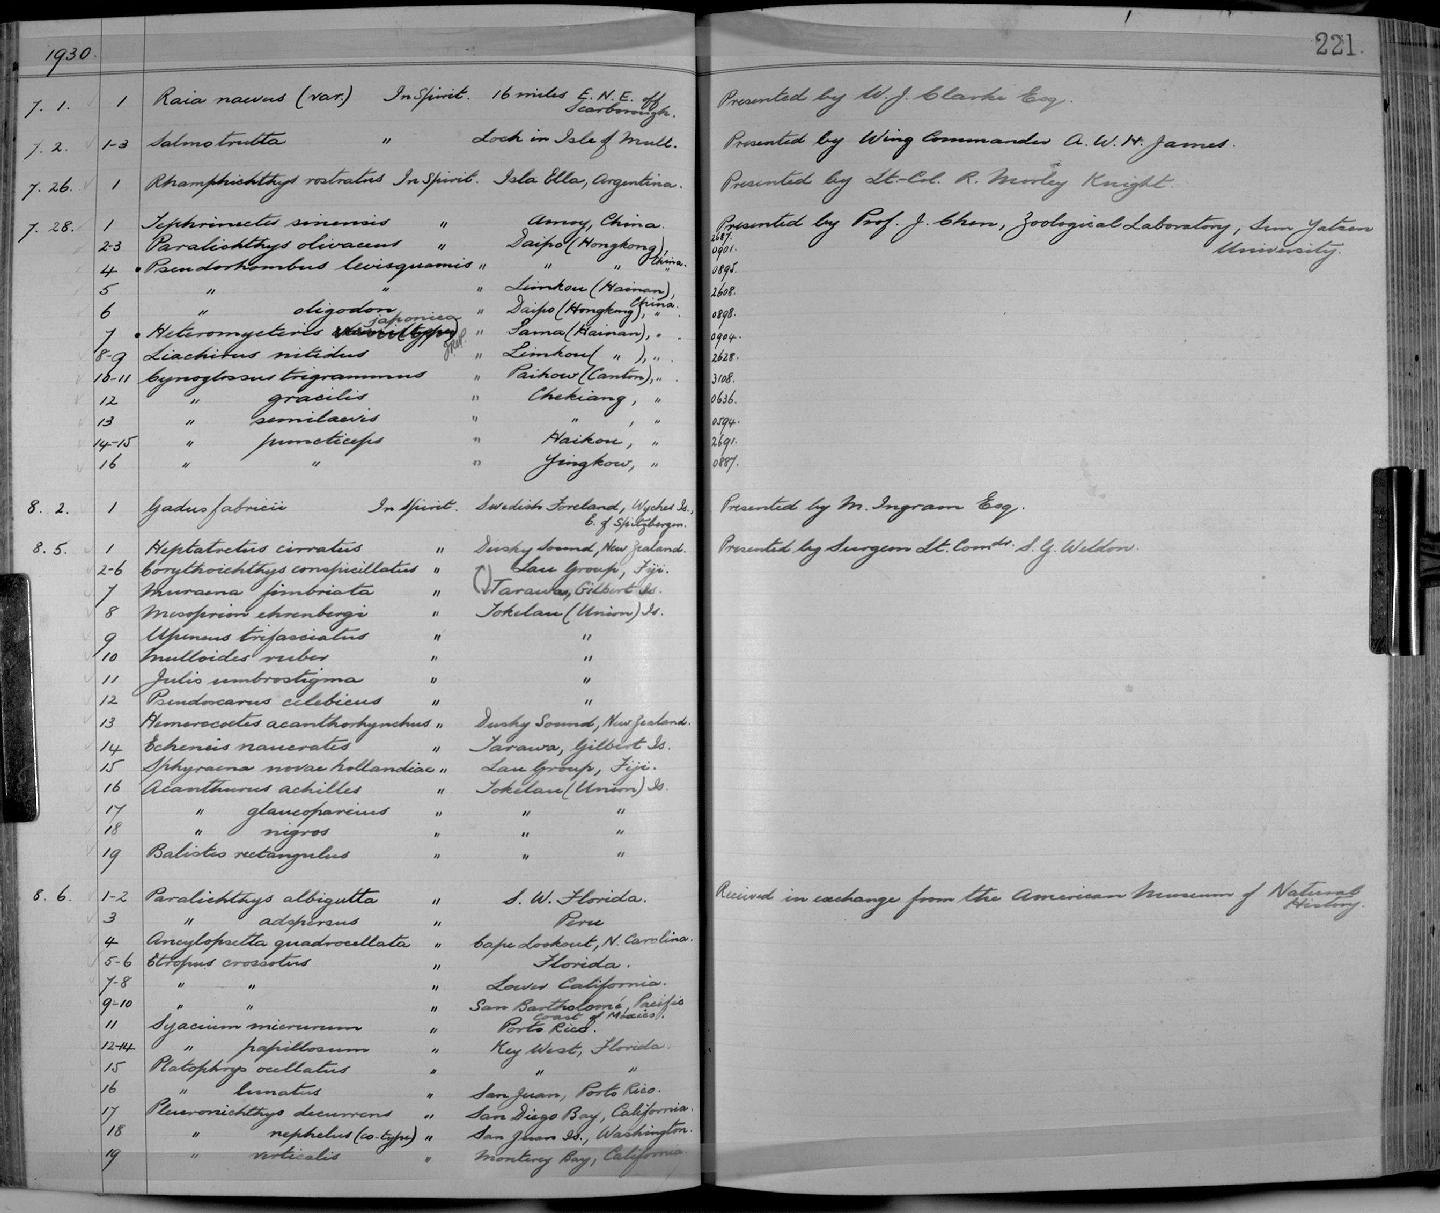 1930.
221.
7. 1. 1 Raia naevus (var.) In Spirit. 16 miles E. N. E. off Scarborough. Presented by W. J. Clarke Esq.
7. 2. 1-3 Salmo trutta " Loch in Isle of Mull. Presented by Wing Commander A. W. H. James.
7. 26. 1 Rhamphichthys rostratus In Spirit. Isla Ella, Argentina. Presented by Lt.-Col. R. Morley Knight.
7. 28. 1 Tephrinectes sinensis " Amoy, China. 2687. Presented by Prof. J. Chen, Zoological Laboratory, Sun Yatsen University.
2-3 Paralichthys olivaceus " Daipo (Hongkong), China. 0901.
4 Pseudorhombus levisquamis " " " " 0895.
5 " " " Limkou (Hainan), 2608.
6 " oligodon " Daipo (Hongkong), China. " 0898.
7 Heteromycteris japonica " Sama (Hainan), " 0904.
8-9 Liachirus nitidus " Limkou ( " ), " 2628.
10-11 Cynoglossus trigrammus " Paikow (Canton), " 3108.
12 " gracilis " Chekiang, " 0636.
13 " semilaevis " " , " 0594.
14-15 " puncticeps " Haikou, " 2691.
16 " " " Yingkow, " 0887.
8. 2. 1 Gadus fabricii In Spirit. Swedish Foreland, Wyches Is., E. of Spitzbergen. Presented by M. Ingram Esq.
8. 5. 1 Heptatretus cirratus " Dusky Sound, New Zealand. Presented by Surgeon Lt. Comdr. S. G. Weldon.
2-6 Corythroichthys conspicillatus " Lau Group, Fiji.
7 Muraena fimbriata " Tarawa, Gilbert Is.
8 Mesoprion ehrenbergi " Tokelau (Union) Is.
9 Upeneus trifasciatus " "
10 Mulloides ruber " "
11 Julis umbrostigma " "
12 Pseudoscarus celebicus " "
13 Hemerocoetes acanthorhynchus " Dusky Sound, New Zealand.
14 Echeneis naucrates " Tarawa, Gilbert Is.
15 Sphyraena novae hollandiae " Lau Group, Fiji.
16 Acanthurus achilles " Tokelau (Union) Is.
17 " glaucopareius " " "
18 " nigros " " "
19 Balistes rectangulus " " "
8. 6. 1-2 Paralichthys albigutta " S. W. Florida. Received in exchange from the American Museum of Natural History.
3 " adspersus " Peru
4 Ancylopsetta quadrocellata " Cape Lookout, N. Carolina.
5-6 Etropus crossotus " Florida.
7-8 " " " Lower California.
9-10 " " " San Bartholomé, Pacific coast of Mexico.
11 Syacium micrurum " Porto Rico.
12-14 " papillosum " Key West, Florida.
15 Platophrys ocellatus " " "
16 " lunatus " San Juan, Porto Rico.
17 Pleuronichthys decurrens " San Diego Bay, California.
18 " nephelus (co-type) " San Juan Is., Washington.
19 " verticalis " Monterey Bay, California